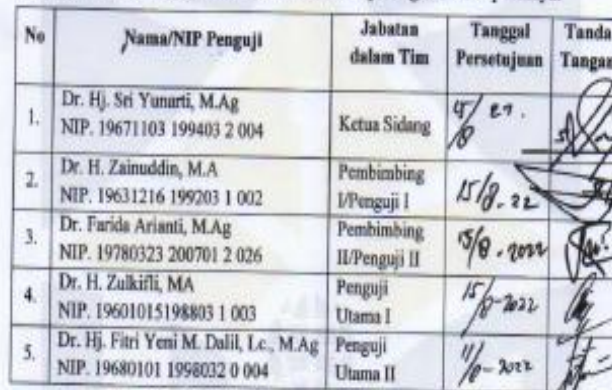 No Nama/NIP Penguji Jabatan dalam Tim Tanggal Persetujuan Tanda Tangan
1. Dr. Hj. Sri Yunarti, M.Ag
NIP. 19671103 199403 2 004
Ketua Sidang
2. Dr. H. Zainuddin, M.A
NIP. 19631216 199203 1 002
Pembimbing
I/Penguji I
15/8-22
3. Dr. Farida Arianti, M.Ag
NIP. 19780323 200701 2 026
Pembimbing
II/Penguji II
15/8-2022
4. Dr. H. Zulkifli, MA
NIP. 19601015198803 1 003
Penguji
Utama I
15/8-2022
5. Dr. Hj. Fitri Yeni M. Dalil, Lc., M.Ag
NIP. 19680101 1998032 0 004
Penguji
Utama II
11/8-2022